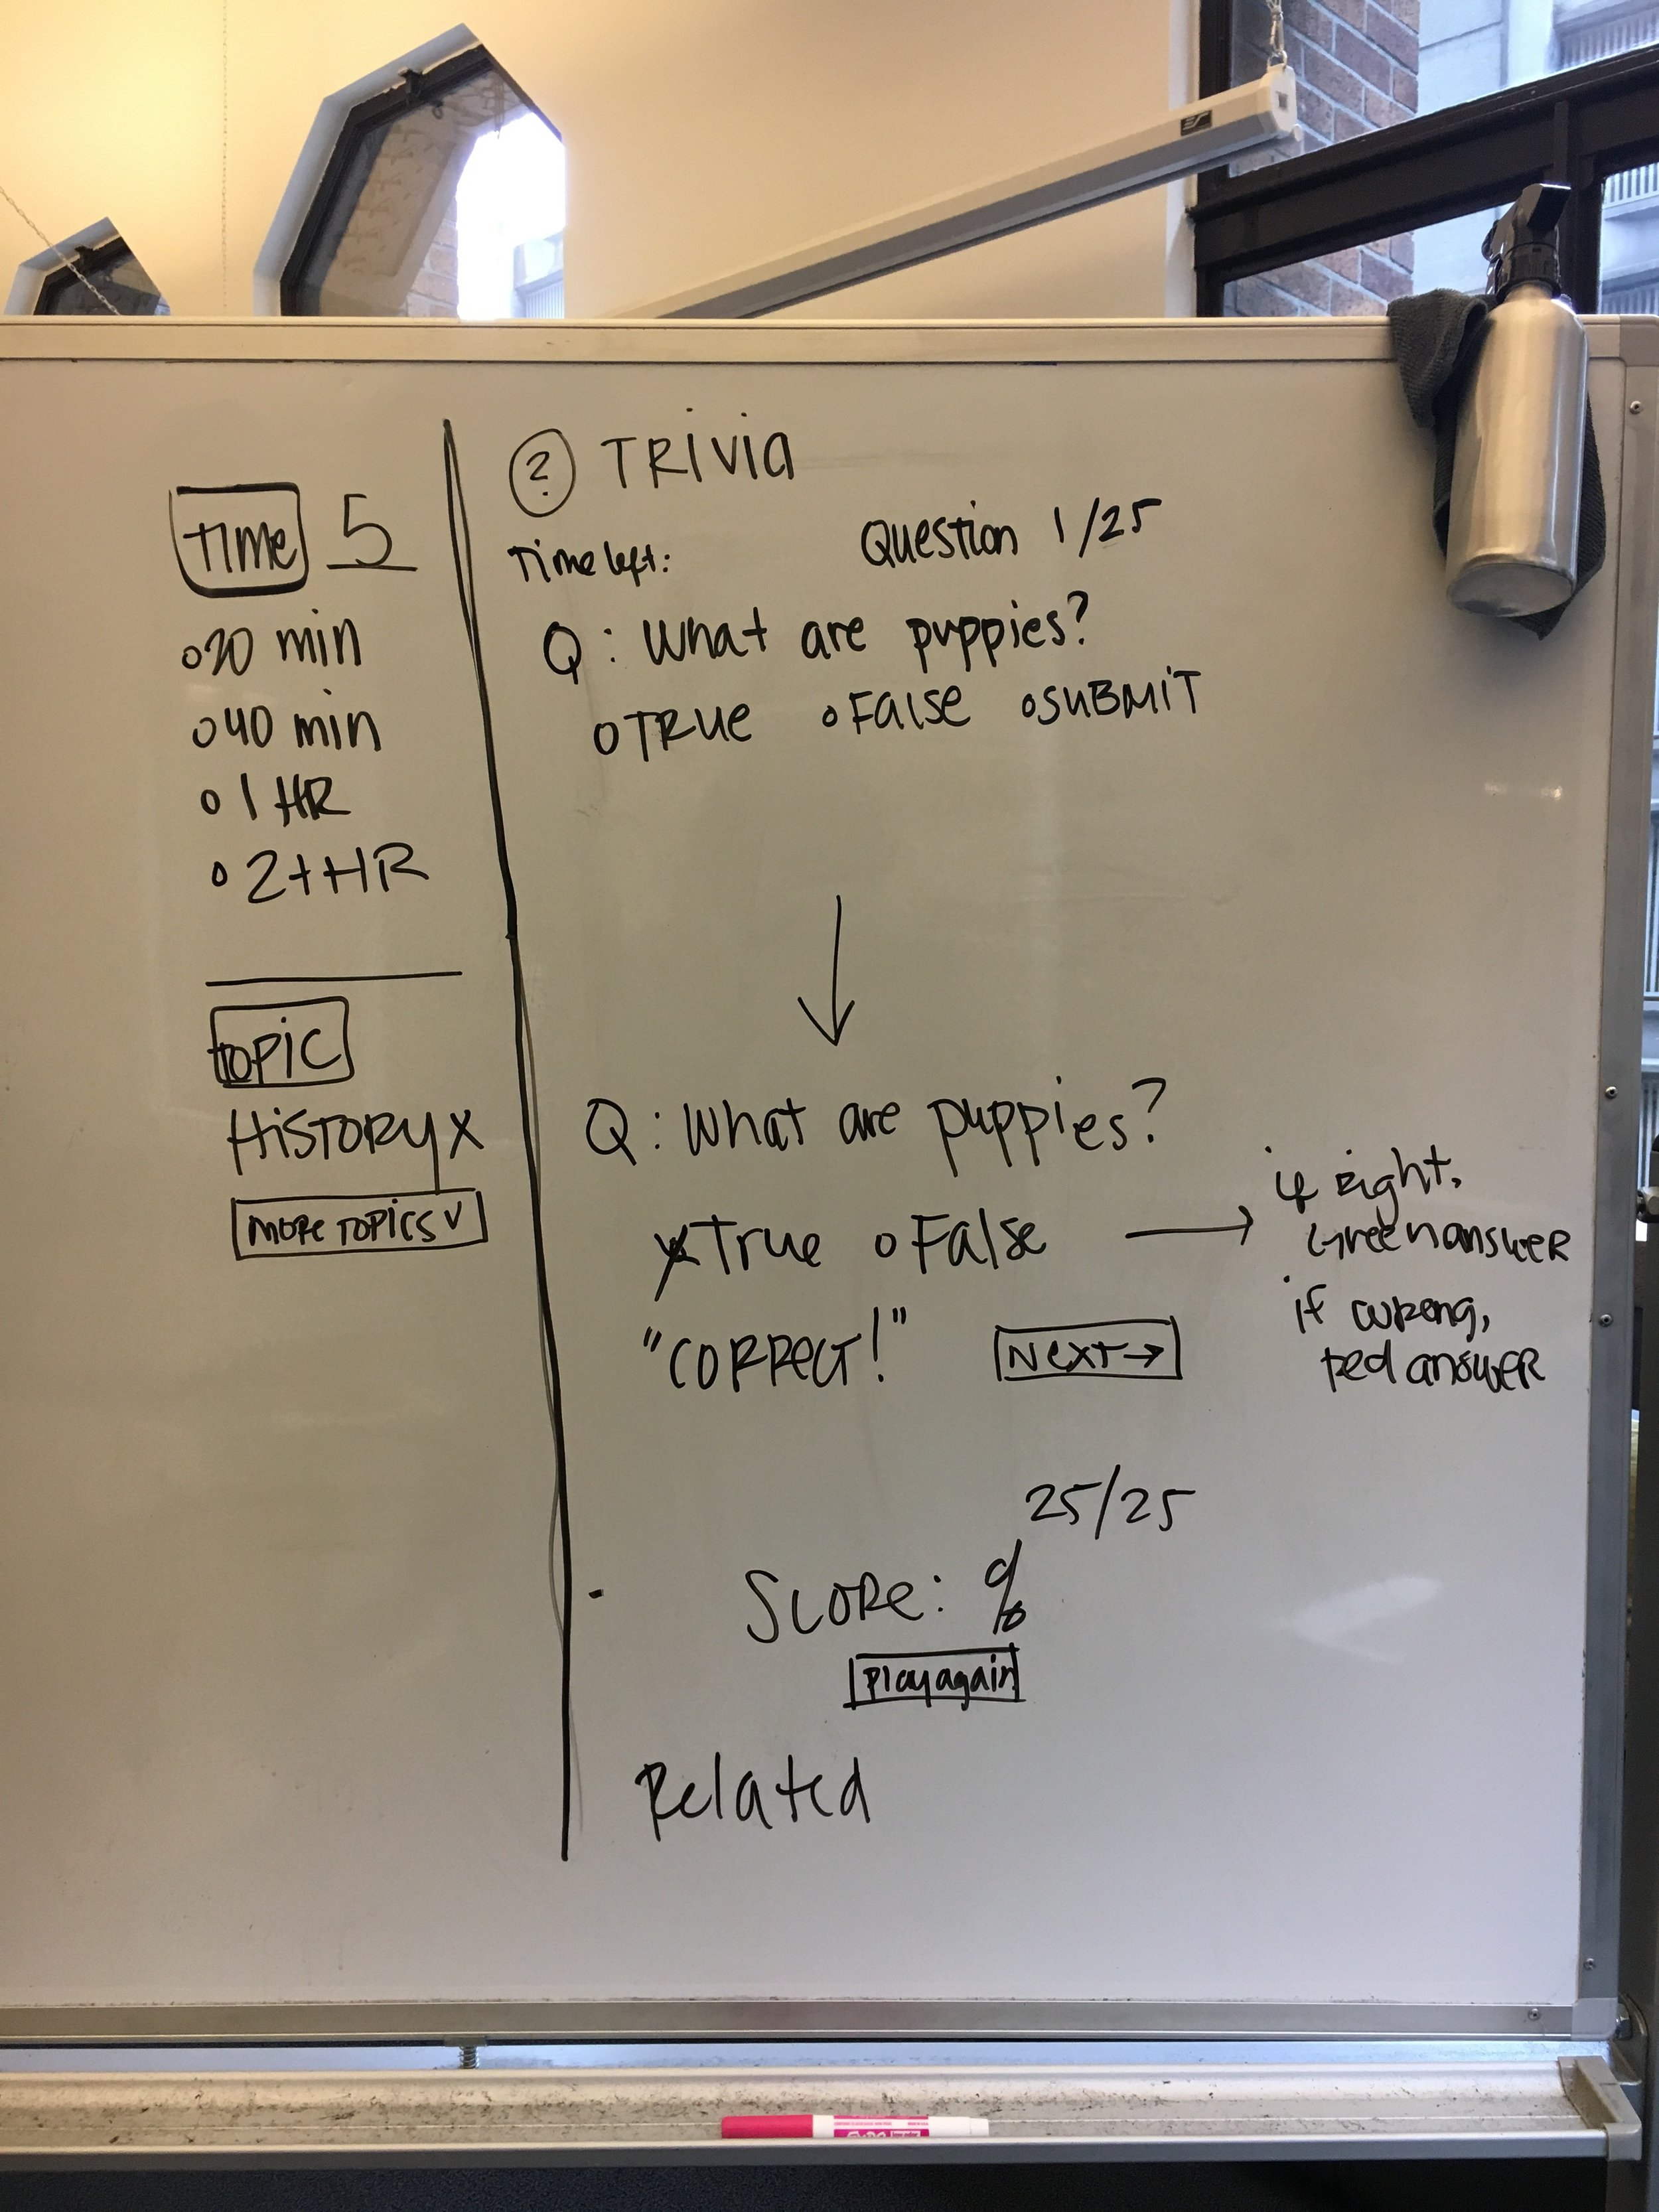 Time 5
20 min
40 min
1 HR
2+HR
Topic
History X
More Topics V
? Trivia
Time left: Question 1/25
Q: What are puppies?
True False Submit
Q: What are puppies?
X True False
"Correct!" Next →
→ if right,
Green answer
if wrong,
red answer
25/25
Score: %
Play again
Related